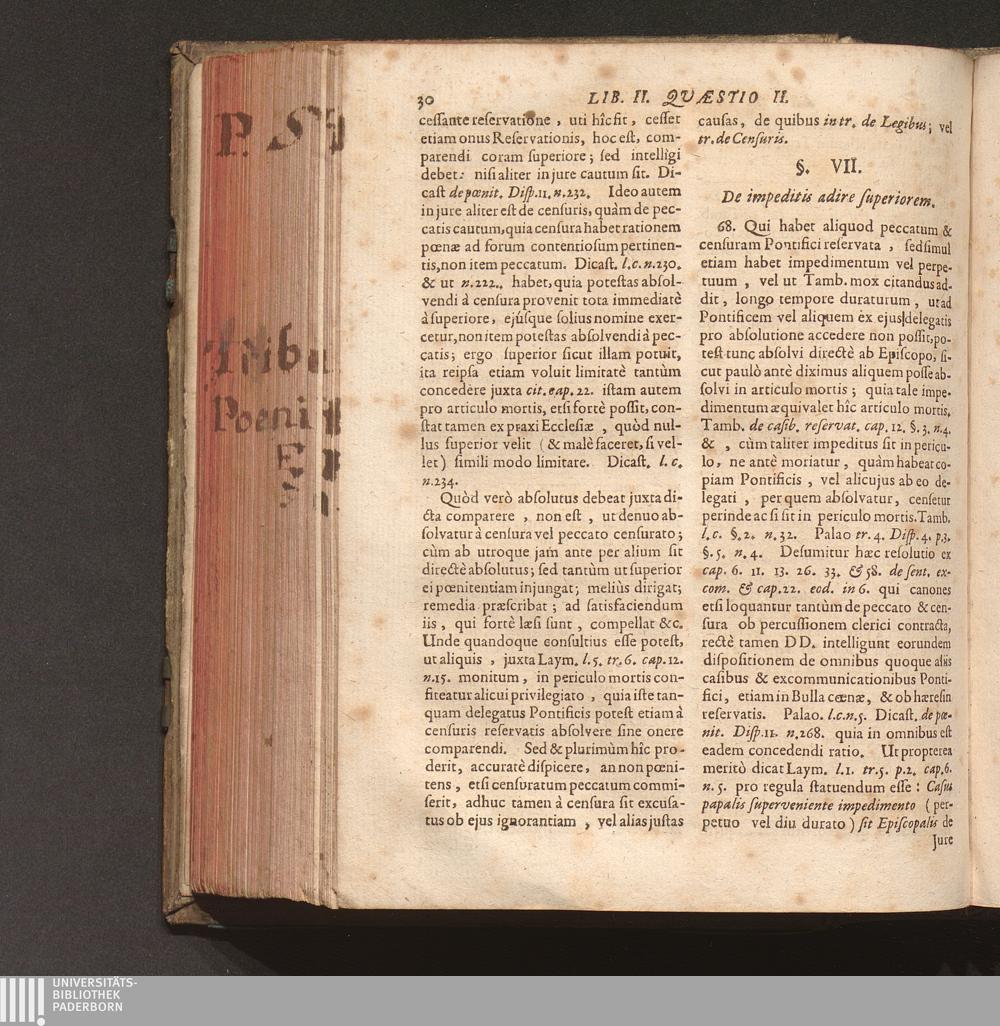 P. S
Tribu
Poeni
30
LIB. II. QVÆSTIO II.
ceſſante reſervatione, uti hîc fit, ceſſet
etiam onus Reſervationis, hoc eſt, com-
parendi coram ſuperiore; ſed intelligi
debet: niſi aliter in jure cautum ſit. Di-
caſt de pœnit. Diſp. 11. n. 232. Ideo autem
in jure aliter eſt de cenſuris, quàm de pec-
catis cautum, quia cenſura habet rationem
pœnæ ad forum contentioſum pertinen-
tis, non item peccatum. Dicaſt. l. c. n. 230.
& ut n. 222., habet, quia poteſtas abſol-
vendi à cenſura provenit tota immediatè
à ſuperiore, ejúſque ſolius nomine exer-
cetur, non item poteſtas abſolvendi à pec-
catis; ergo ſuperior ſicut illam potuit,
ita reipſa etiam voluit limitatè tantùm
concedere juxta cit. cap. 22. iſtam autem
pro articulo mortis, etſi fortè poſſit, con-
ſtat tamen ex praxi Eccleſiæ, quòd nul-
lus ſuperior velit (& malè faceret, ſi vel-
let) ſimili modo limitare. Dicaſt. l. c.
n. 234.
Quòd verò abſolutus debeat juxta di-
cta comparere, non eſt, ut denuo ab-
ſolvatur à cenſura vel peccato cenſurato;
cùm ab utroque jam ante per alium ſit
directè abſolutus; ſed tantùm ut ſuperior
ei pœnitentiam injungat; meliùs dirigat;
remedia præſcribat; ad ſatisfaciendum
iis, qui fortè læſi ſunt, compellat &c.
Unde quandoque conſultius eſſe poteſt,
ut aliquis, juxta Laym. l. 5. tr. 6. cap. 12.
n. 15. monitum, in periculo mortis con-
fiteatur alicui privilegiato, quia iſte tan-
quam delegatus Pontificis poteſt etiam à
cenſuris reſervatis abſolvere ſine onere
comparendi. Sed & plurimùm hîc pro-
derit, accuratè diſpicere, an non pœni-
tens, etſi cenſuratum peccatum commi-
ſerit, adhuc tamen à cenſura ſit excuſa-
tus ob ejus ignorantiam, vel alias juſtas
cauſas, de quibus in tr. de Legibus; vel
tr. de Cenſuris.
§. VII.
De impeditis adire ſuperiorem.
68. Qui habet aliquod peccatum &
cenſuram Pontifici reſervata, ſed ſimul
etiam habet impedimentum vel perpe-
tuum, vel ut Tamb. mox citandus ad-
dit, longo tempore duraturum, ut ad
Pontificem vel aliquem ex ejus delegatis
pro abſolutione accedere non poſſit, po-
teſt tunc abſolvi directè ab Epiſcopo, ſi-
cut paulò antè diximus aliquem poſſe ab-
ſolvi in articulo mortis; quia tale impe-
dimentum æquivalet hîc articulo mortis,
Tamb. de caſib. reſervat. cap. 12. §. 3. n. 4.
&, cùm taliter impeditus ſit in pericu-
lo, ne antè moriatur, quàm habeat co-
piam Pontificis, vel alicujus ab eo de-
legati, per quem abſolvatur, cenſetur
perinde ac ſi ſit in periculo mortis. Tamb.
l. c. §. 2. n. 32. Palao tr. 4. Diſp. 4. p. 3.
§. 5. n. 4. Deſumitur hæc reſolutio ex
cap. 6. 11. 13. 26. 33. & 58. de ſent. ex-
com. & cap. 22. eod. in 6. qui canones
etſi loquantur tantùm de peccato & cen-
ſura ob percuſſionem clerici contracta,
rectè tamen DD. intelligunt eorundem
diſpoſitionem de omnibus quoque aliis
caſibus & excommunicationibus Ponti-
fici, etiam in Bulla cœnæ, & ob hæreſin
reſervatis. Palao. l. c. n. 5. Dicaſt. de pœ-
nit. Diſp. 11. n. 268. quia in omnibus eſt
eadem concedendi ratio. Ut propterea
meritò dicat Laym. l. 1. tr. 5. p. 2. cap. 6.
n. 5. pro regula ſtatuendum eſſe: Caſui
papalis ſuperveniente impedimento (per-
petuo vel diu durato) ſit Epiſcopalis de
Jure
UNIVERSITÄTS-
BIBLIOTHEK
PADERBORN